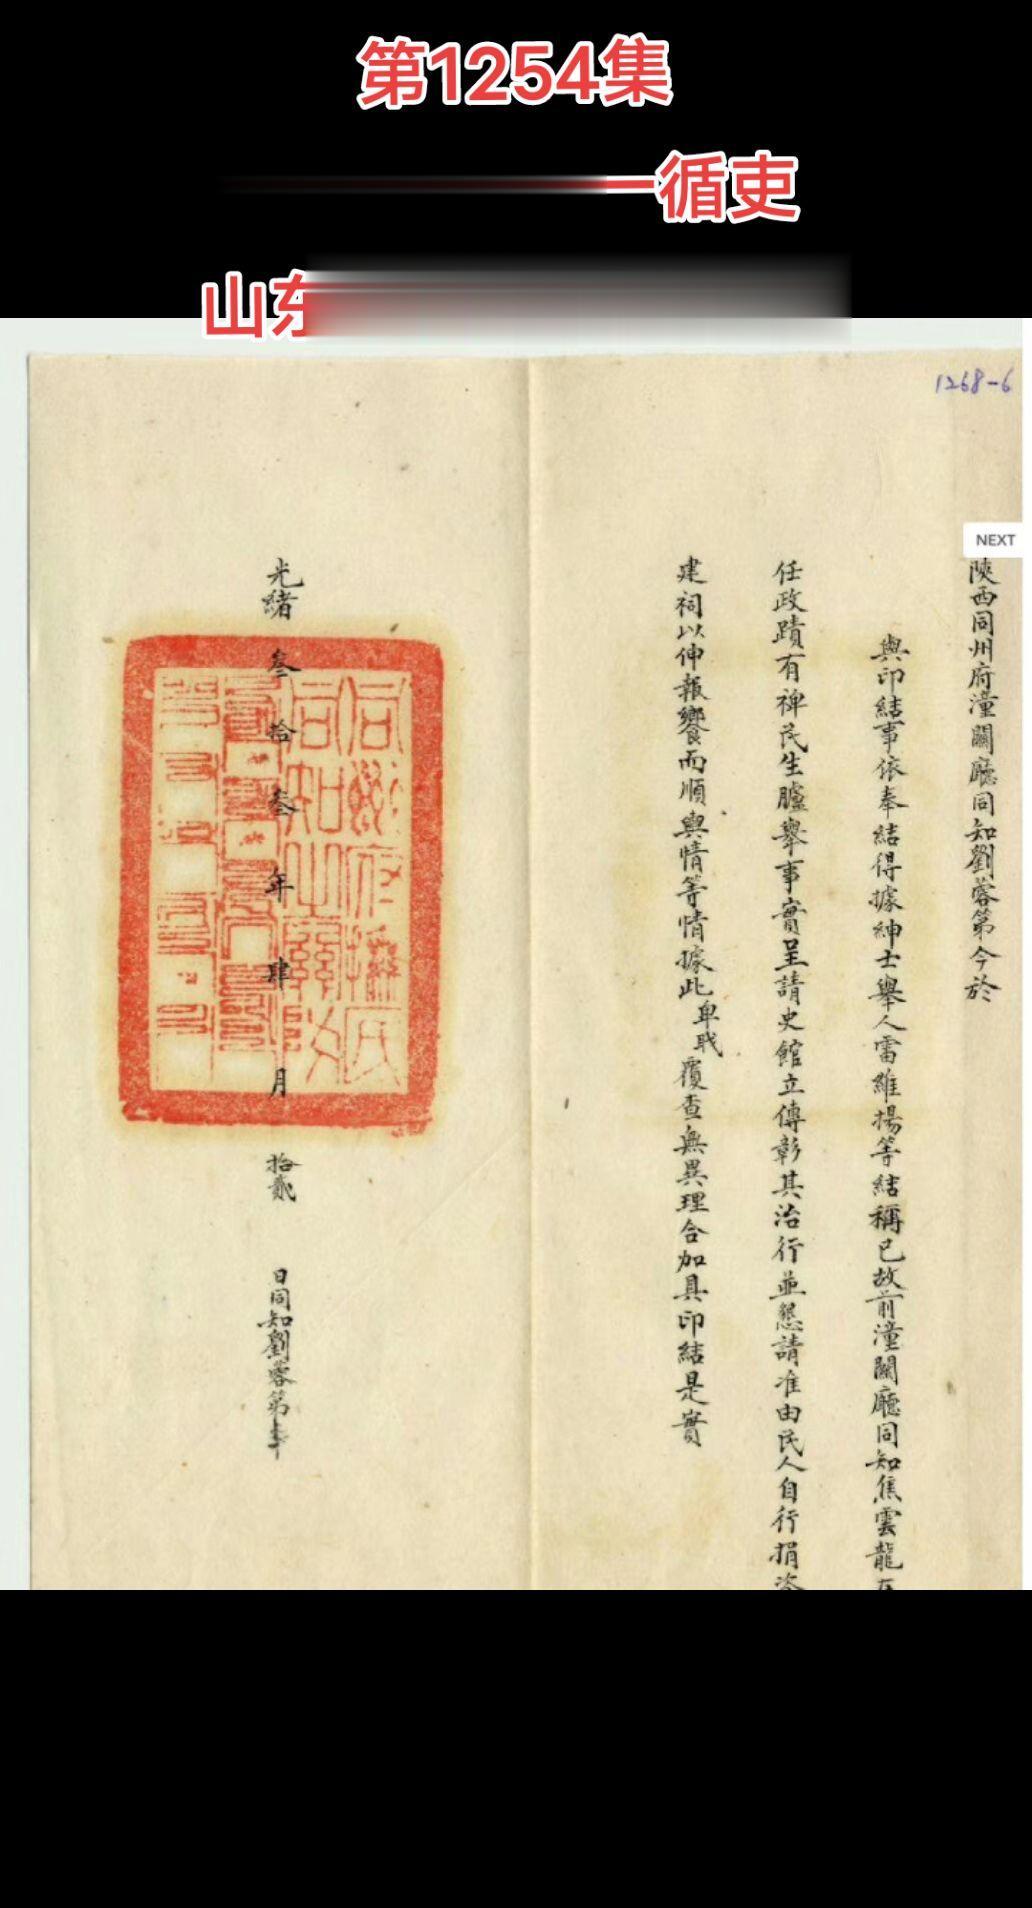 第1254集
一循吏
山东
1268-6
NEXT
陝西同州府潼關廳同知劉蓉第今於
與印結事依奉結得據紳士舉人雷維揚等結稱已故前潼關廳同知焦雲龍在
任政蹟有裨民生臚舉事實呈請史館立傳彰其治行並懇請准由民人自行捐资
建祠以伸報饗而順輿情等情據此卑職覆查無異理合加具印結是實
光緒叁拾叁年肆月拾貳日同知劉蓉第